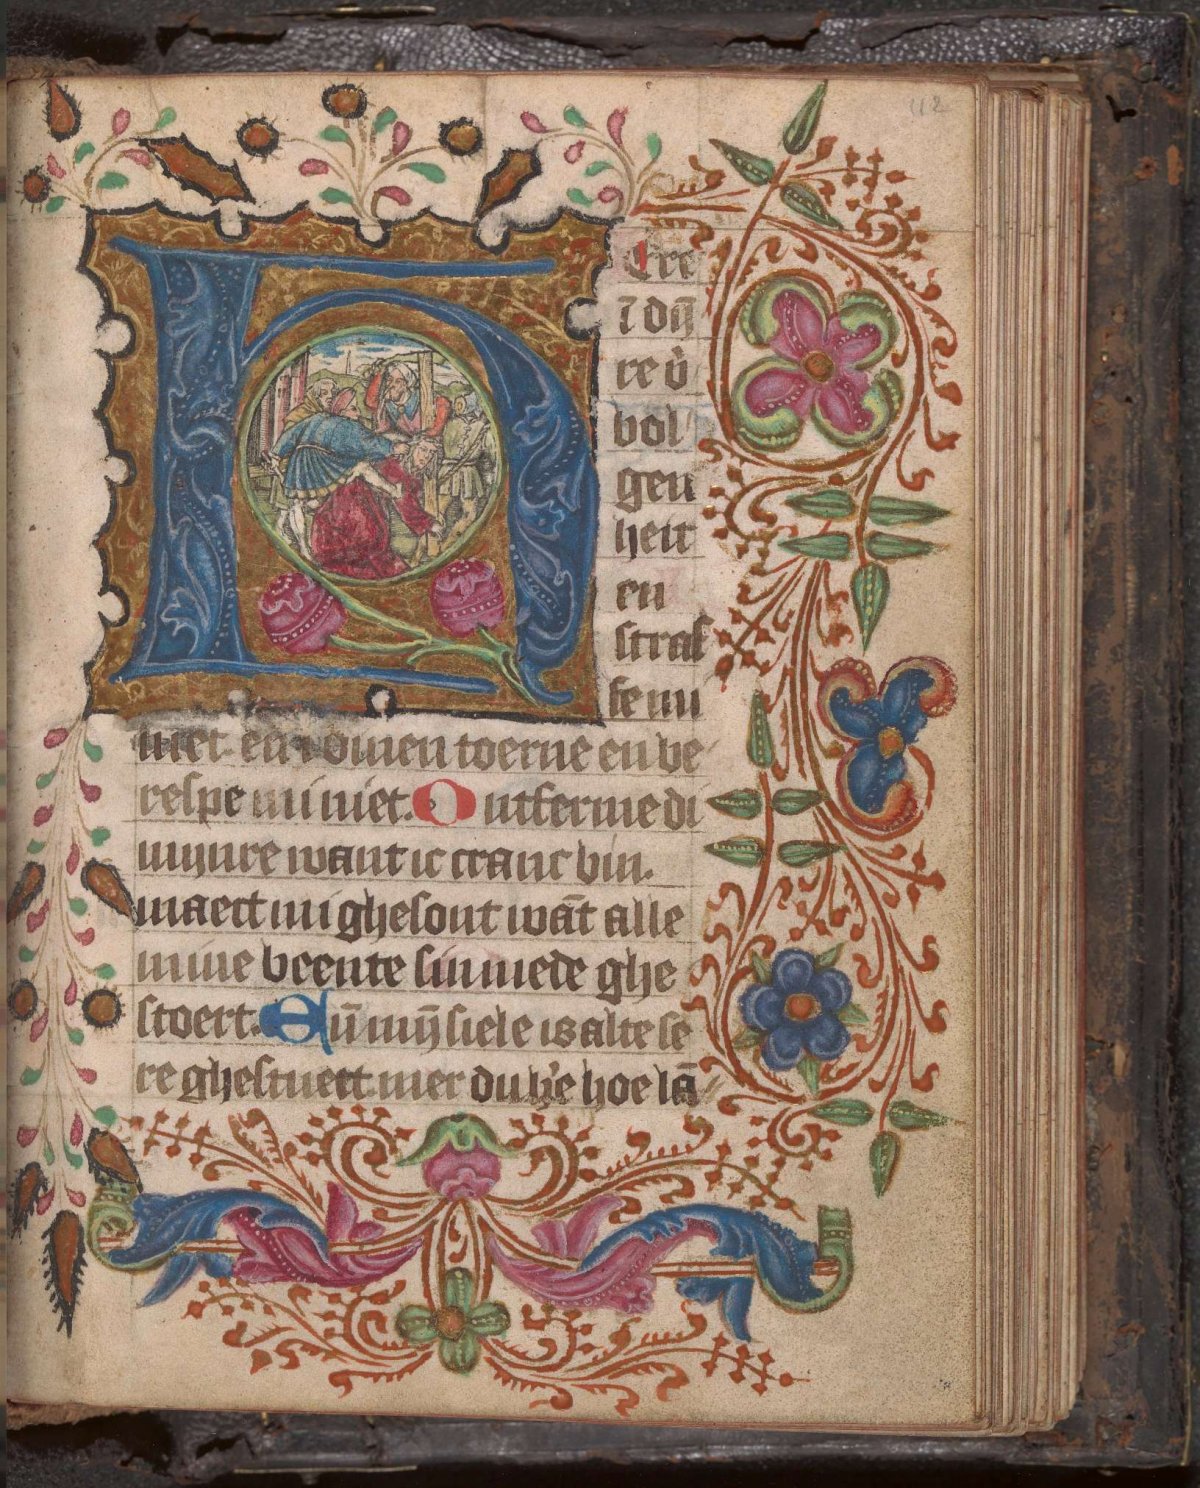 112
H Ere
ī dijn
re v̓
bol
gen
heit
en
straf
fe mi
niet. en dinen toerne en be
respe mi niet. Ontferme di
mijnre want ic cranc bin.
maect mi ghesont wāt alle
mine beente sin mede ghe
stoert. Eū mijn siele is alte se
re ghestuert mer du h̓e hoe lā